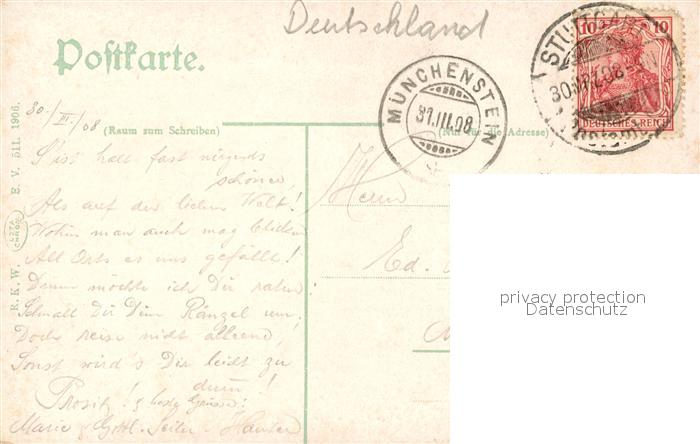 Deutschland
Postkarte.
STUTTGART
30 MRZ 08
10 10
DEUTSCHES REICH
MÜNCHENSTEIN
31.III.08
30./III./08
(Raum zum Schreiben)
(Nur für die Adresse)
R.K.W. E.V. 511. 1906.
S'ist halt fast nirgends
schöner,
Als auf der lieben Welt!
Wohin man auch mag blicken
All Orts es uns gefällt!
Drum möchte ich Dir raten
Schnall Dir Dein Ränzel um,
Doch reise nicht alleend,
Sonst wird's Dir leicht zu
dumm!
Prosit! & beste Grüsse!
Marie & Gottl. Seiler-
Herrn
Ed.
privacy protection
Datenschutz